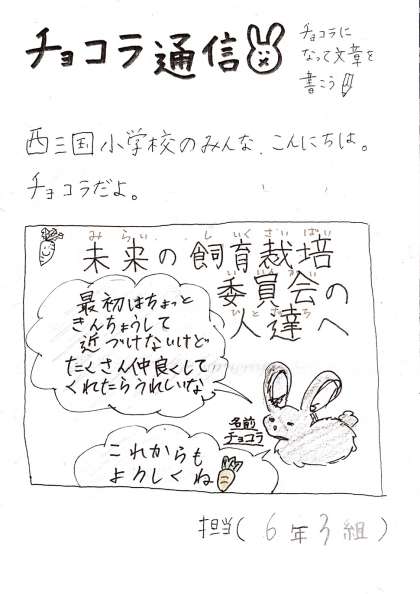 チョコラ通信
チョコラに
なって文章を
書こう
西三国小学校のみんな、こんにちは。
チョコラだよ。
みらい しいくさいばい
未来の飼育栽培
いいんかい
委員会の
ひとたち
人達へ
最初はちょっと
きんちょうして
近づけないけど
たくさん仲良くして
くれたらうれしいな
名前
チョコラ
これからも
よろしくね
担当(6年3組)